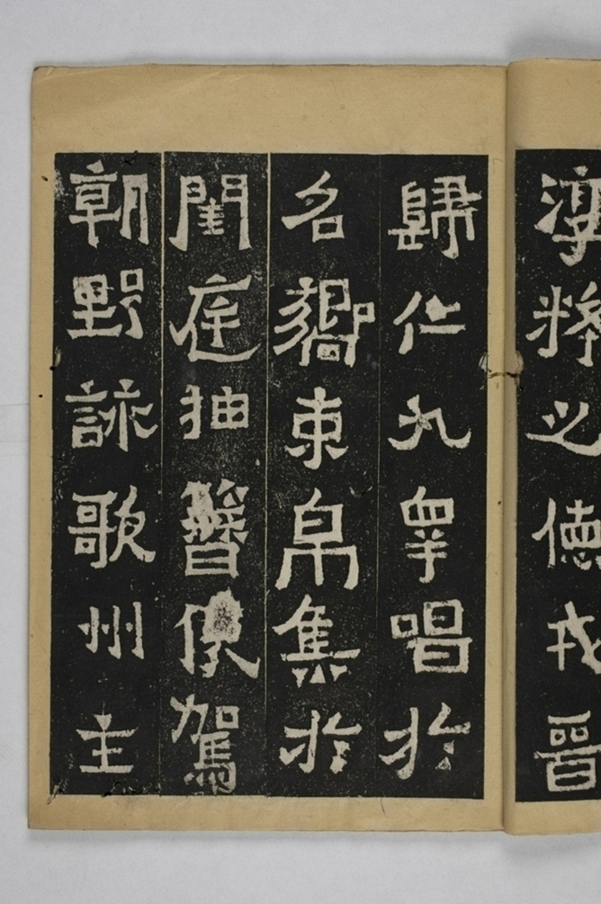 淳將之德戎晉
歸仁九睪唱於
名嚮束帛集於
閨庭抽簪俟駕
朝野詠歌州主